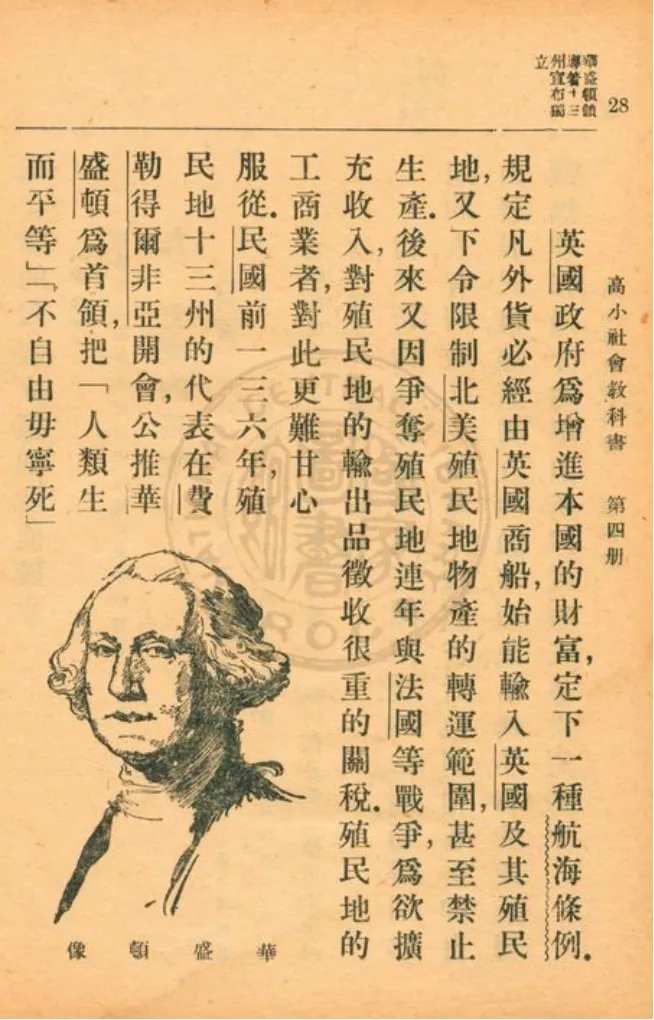 28
華盛頓領
導着十三
州宣布獨
立
高小社會教科書　第四册
英國政府爲增進本國的財富，定下一種航海條例．
規定凡外貨必經由英國商船，始能輸入英國及其殖民
地，又下令限制北美殖民地物產的轉運範圍，甚至禁止
生產．後來又因爭奪殖民地連年與法國等戰爭，爲欲擴
充收入，對殖民地的輸出品徵收很重的關稅．殖民地的
工商業者，對此更難甘心
服從．民國前一三六年，殖
民地十三州的代表在費
勒得爾非亞開會，公推華
盛頓爲首領，把「人類生
而平等」「不自由毋寧死」
華盛頓像